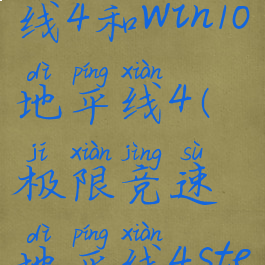 线4和win10
dì píng xiàn
地平线4(
jí xiàn jìng sù
极限竞速
dì píng xiàn
地平线4ste